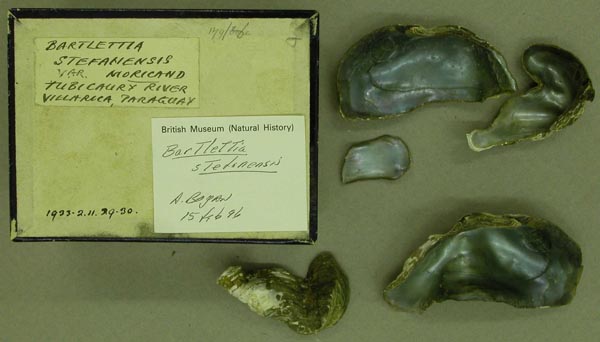 BARTLETTIA
STEFANENSIS
VAR. MORICAND
TUBICAURY RIVER
VILLARICA, PARAGUAY
British Museum (Natural History)
Bartlettia
stefanensis
A. Bogan
15 Feb 96
1933.2.11.29-30.